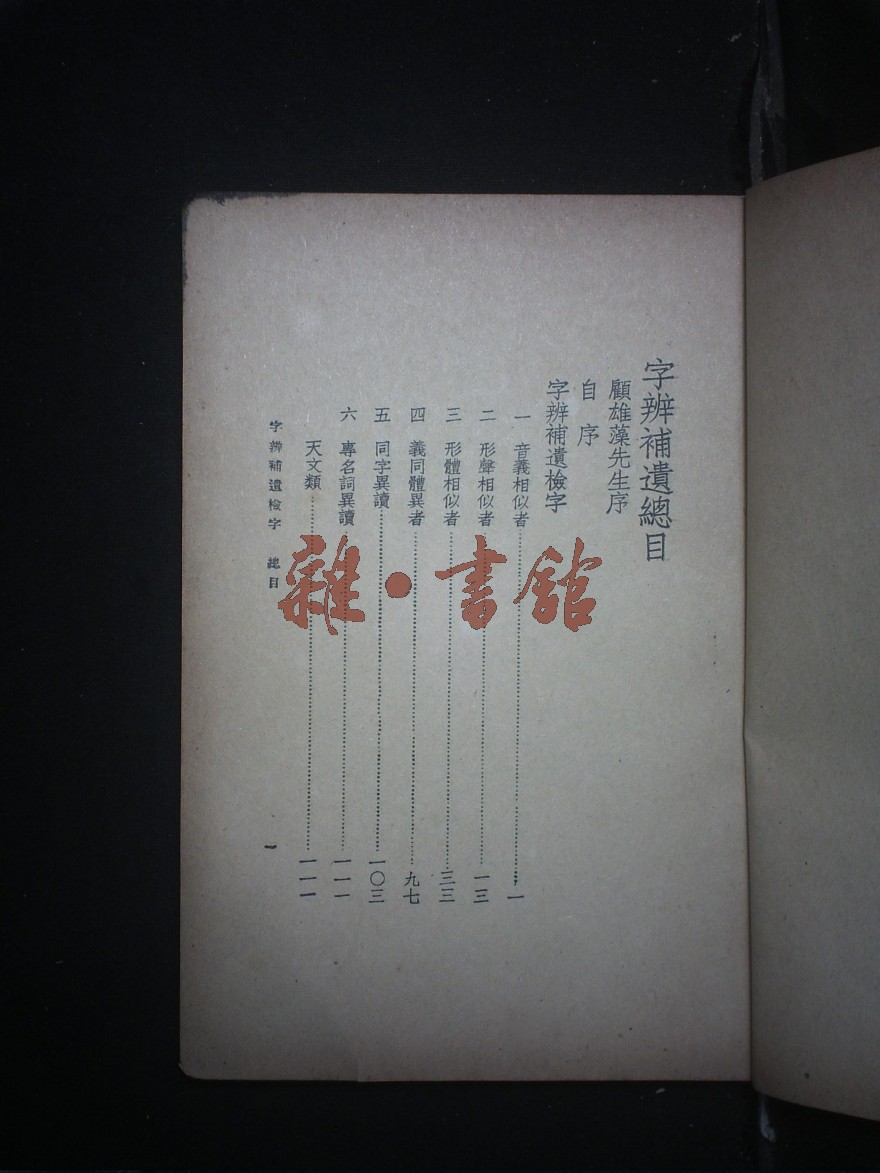 字辨補遺總目
顧雄藻先生序
自序
字辨補遺檢字
一 音義相似者……一
二 形聲相似者……一三
三 形體相似者……三三
四 義同體異者……九七
五 同字異讀……一〇三
六 專名詞異讀……一一一
天文類……一一一
字辨補遺檢字 總目 一
雜·書館